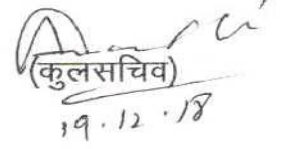 (कुलसचिव)
19.12.18